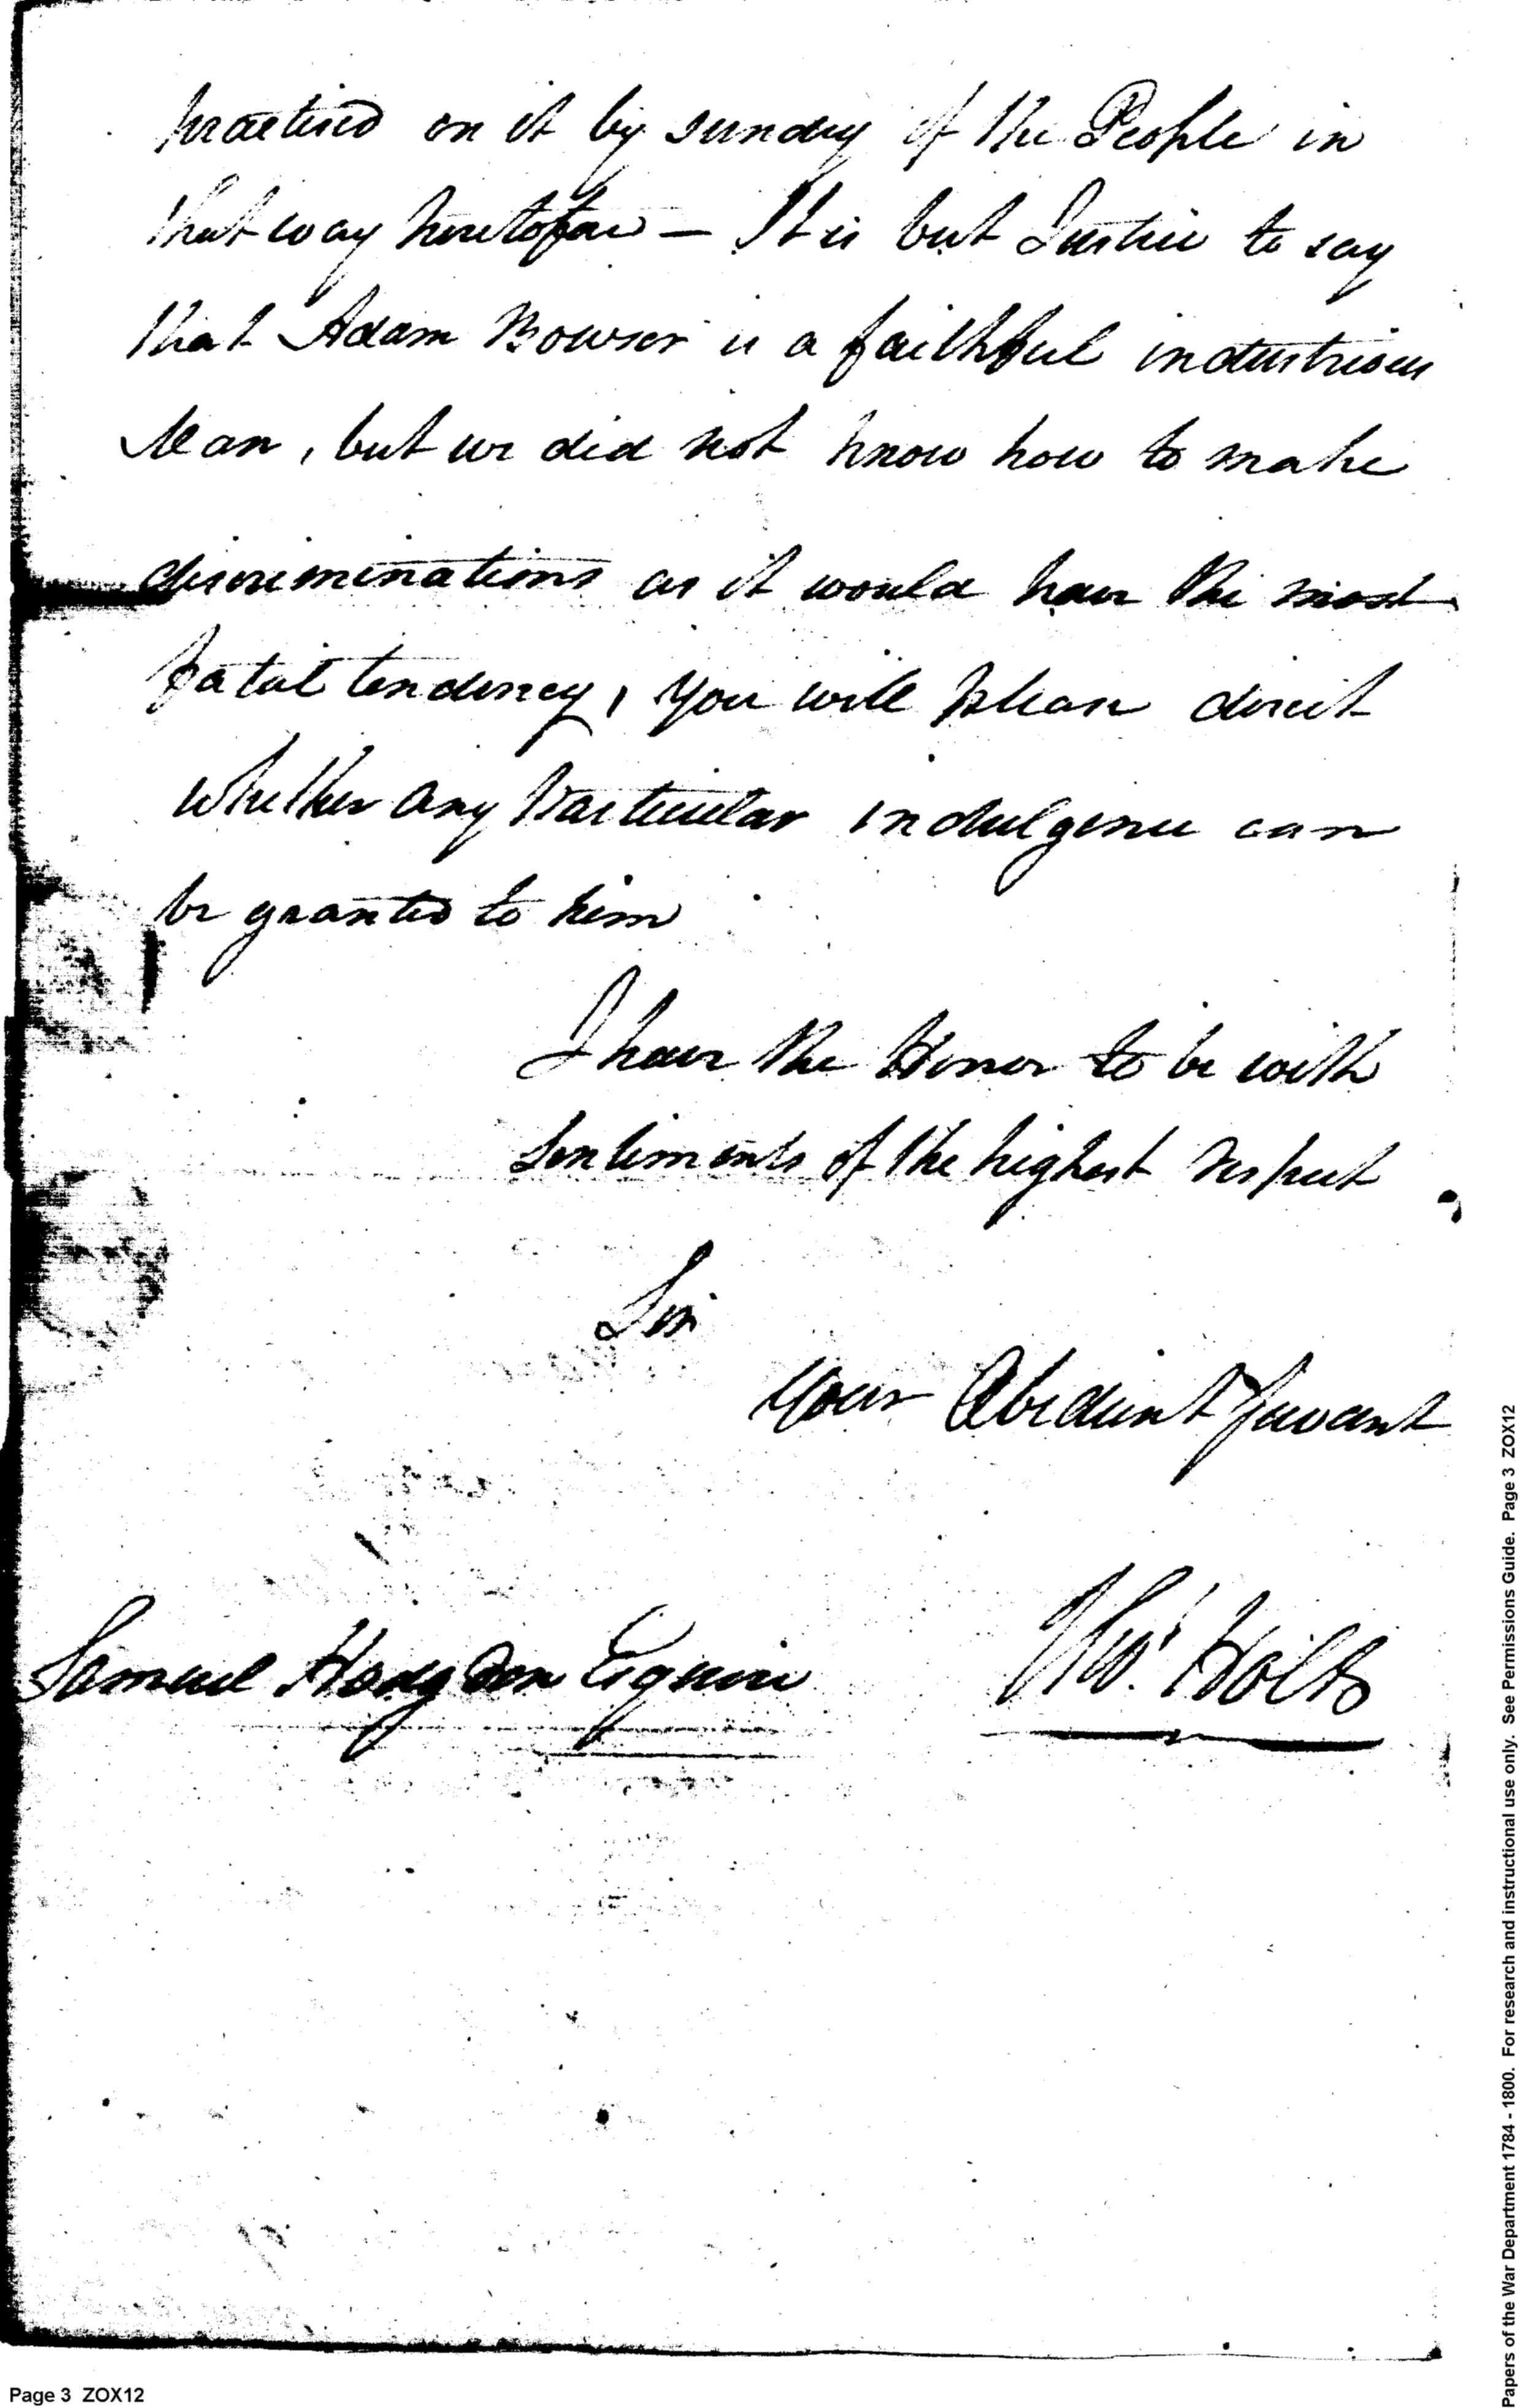 practised on it by sundry of the People in
that way heretofore — It is but Justice to say
that Adam Bowser is a faithful industrious
Man, but we did not know how to make
discriminations as it would have the most
fatal tendency, you will please direct
whether any Particular indulgence can
be granted to him
I have the Honor to be with
Sentiments of the highest respect
Sir
Your Obedient Servant
Samuel Hodgdon Esquire
Thos. Holt
Page 3 ZOX12
Papers of the War Department 1784 - 1800. For research and instructional use only. See Permissions Guide. Page 3 ZOX12